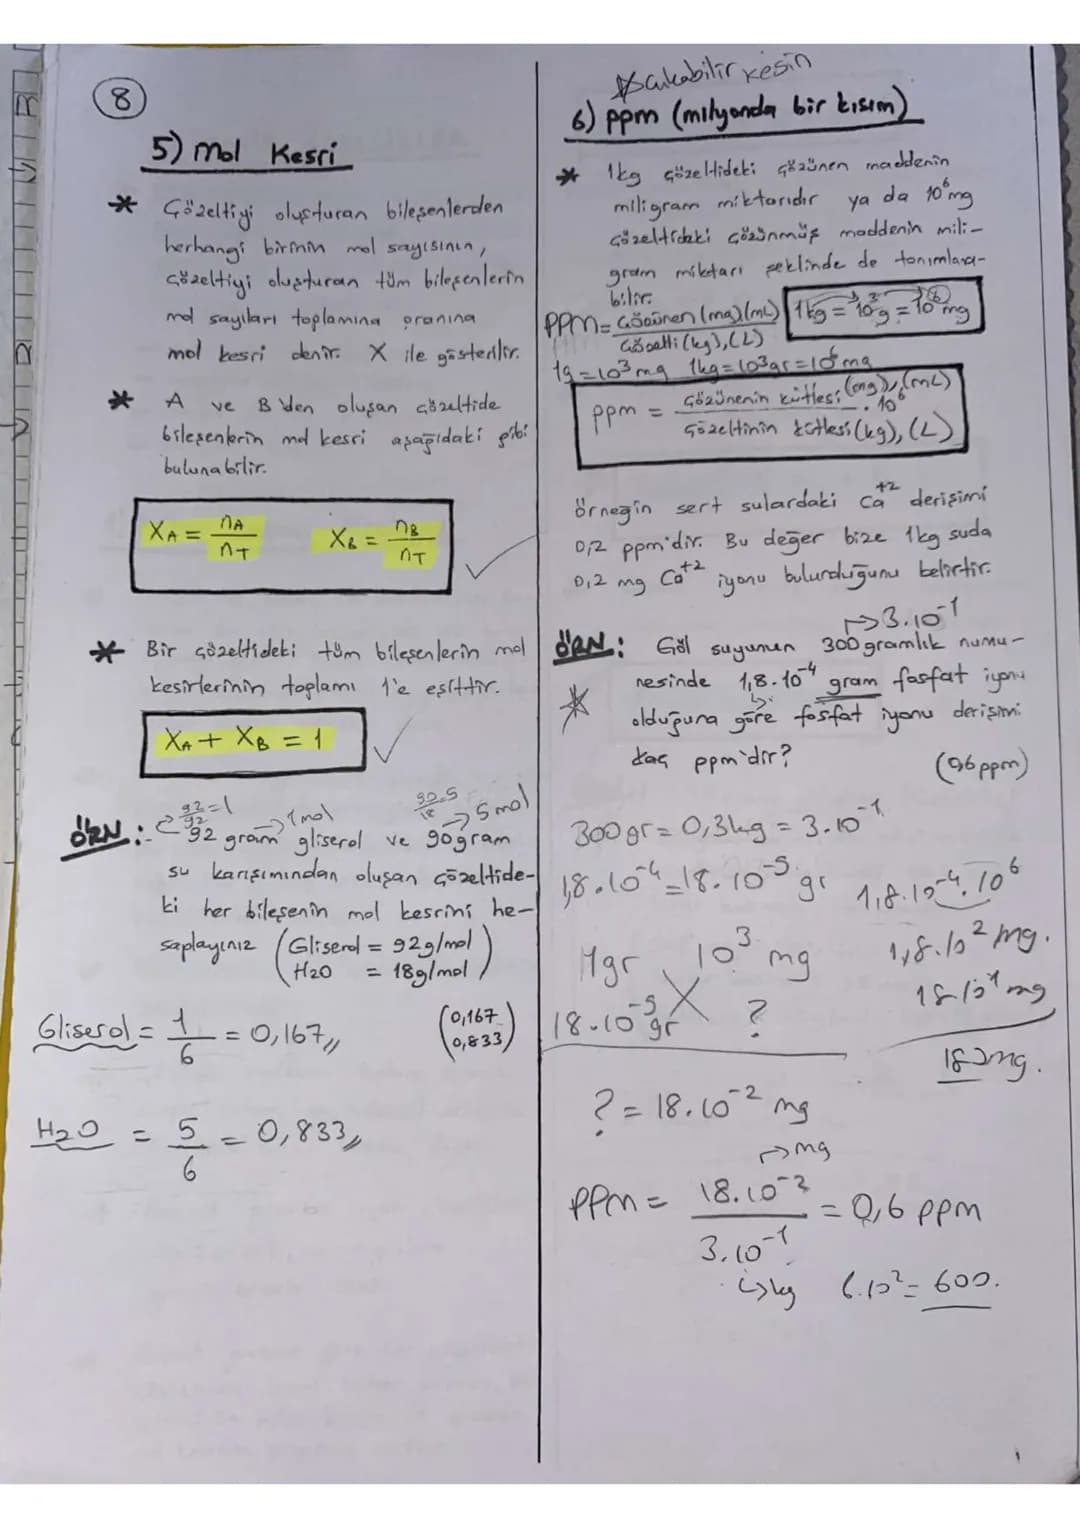 8
5) Mol Kesri
* Çözeltiyi oluşturan bileşenlerden
herhangi birinin mol sayısının,
çözeltiyi oluşturan tüm bileşenlerin
mol sayıları toplamına oranına
mol kesri denir. X ile gösterilir.
* A ve B'den oluşan çözeltide
bileşenlerin mol kesri aşağıdaki gibi
bulunabilir.
XA = nA/nT XB = nB/nT
* Bir çözeltideki tüm bileşenlerin mol
kesirlerinin toplamı 1'e eşittir.
XA + XB = 1
92/92 = 1 → 1 mol 90.5/18 → 5 mol
ÖRN: 92 gram gliserol ve 90 gram
su karışımından oluşan çözeltide-
ki her bileşenin mol kesrini he-
saplayınız (Gliserol = 92g/mol
H2O = 18g/mol)
Gliserol = 1/6 = 0,167,, (0,167
0,833)
H2O = 5/6 = 0,833,,
* çıkabilir kesin
6) ppm (milyonda bir kısım)
* 1kg çözeltideki çözünen maddenin
miligram miktarıdır ya da 10⁶mg
çözeltideki çözünmüş maddenin mili-
gram miktarı şeklinde de tanımlana-
bilir.
PPM = Çözünen (mg)(mL) / Çözelti (kg),(L)
1kg = 10³g = 10⁶mg
1g = 10³mg 1kg = 10³gr = 10⁶mg
ppm = Çözünenin kütlesi (mg),(mL) / Çözeltinin kütlesi (kg),(L) . 10⁶
Örneğin sert sulardaki Ca⁺² derişimi
0,2 ppm'dir. Bu değer bize 1kg suda
0,2 mg Ca⁺² iyonu bulunduğunu belirtir.
→ 3.10⁻¹
ÖRN: Göl suyunun 300 gramlık numu-
* nesinde 1,8.10⁻⁴ gram fosfat iyonu
olduğuna göre fosfat iyonu derişimi
kaç ppm'dir?
(0,6 ppm)
300gr = 0,3kg = 3.10⁻¹
1,8.10⁻⁴ = 18.10⁻⁵ gr
1,8.10⁻⁴.10⁶
1,8.10² mg.
18.10¹ mg
180mg.
1gr 10³ mg
18.10⁻⁵ gr ?
? = 18.10⁻² mg
→ mg
PPM = 18.10⁻² / 3.10⁻¹ = 0,6 ppm
→ kg
6.10² = 600.